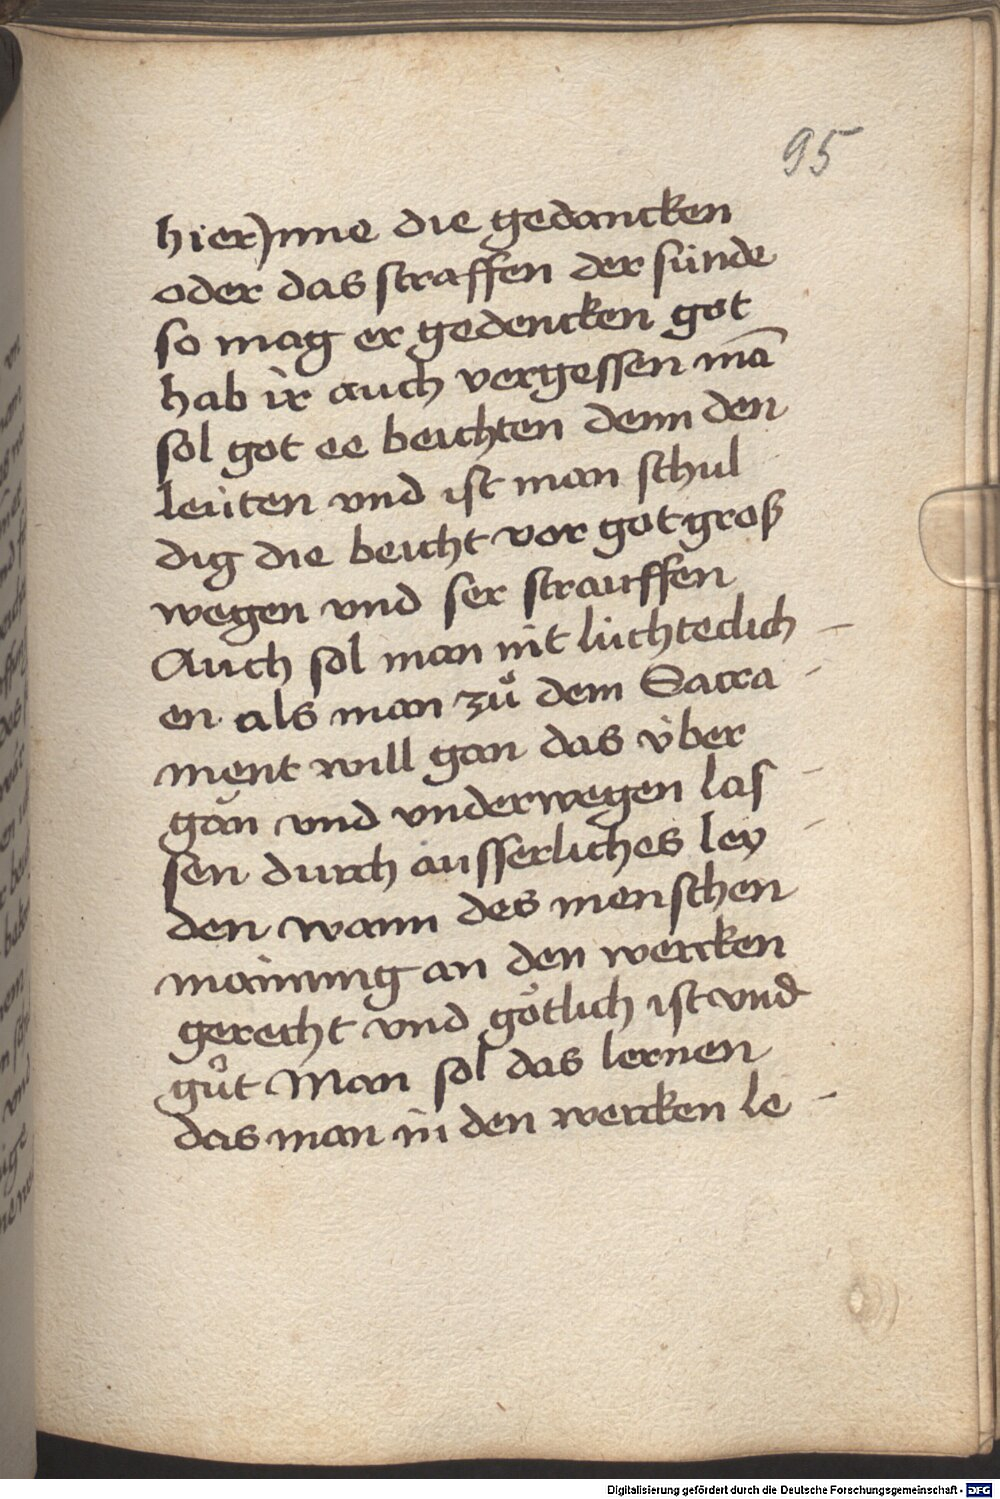 95
hierJnne die gedancken
oder das straffen der sünde
so mag er gedencken got
hab ir auch vergessen mā
sol got ee beichten denn den
leüten vnd ist man schul
dig die beicht vor got groß
wegen vnd ser strauffen
Auch sol man nit lüchteclich
en als man zů dem Sacra
ment will gan das über
gān vnd vnderwegen las
sen durch äusserliches ley
den wann des menschen
mainung an den wercken
gerecht vnd götlich ist vnd
gůt Man sol das lernen
das man in den wercken le
Digitalisierung gefördert durch die Deutsche Forschungsgemeinschaft - DFG